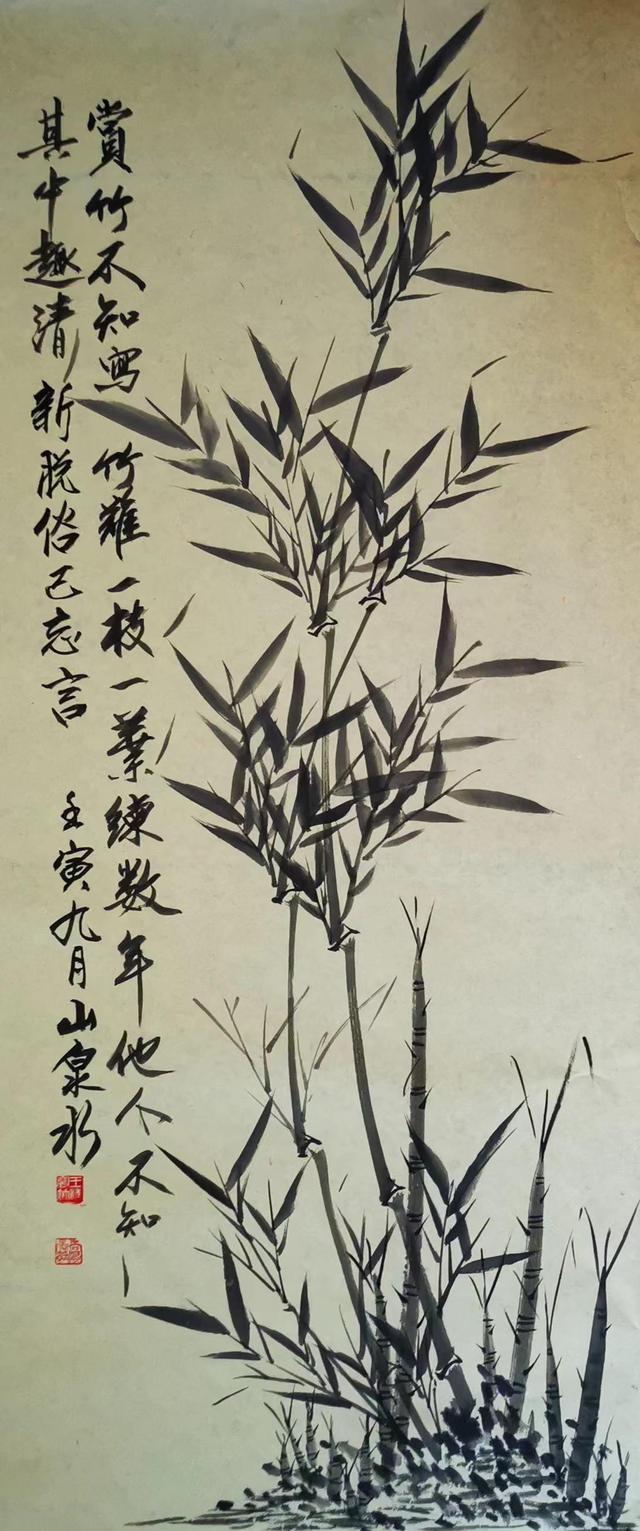 賞竹不知寫竹難一枝一葉練数年他人不知
其中趣清新脱俗己忘言
壬寅九月山泉水